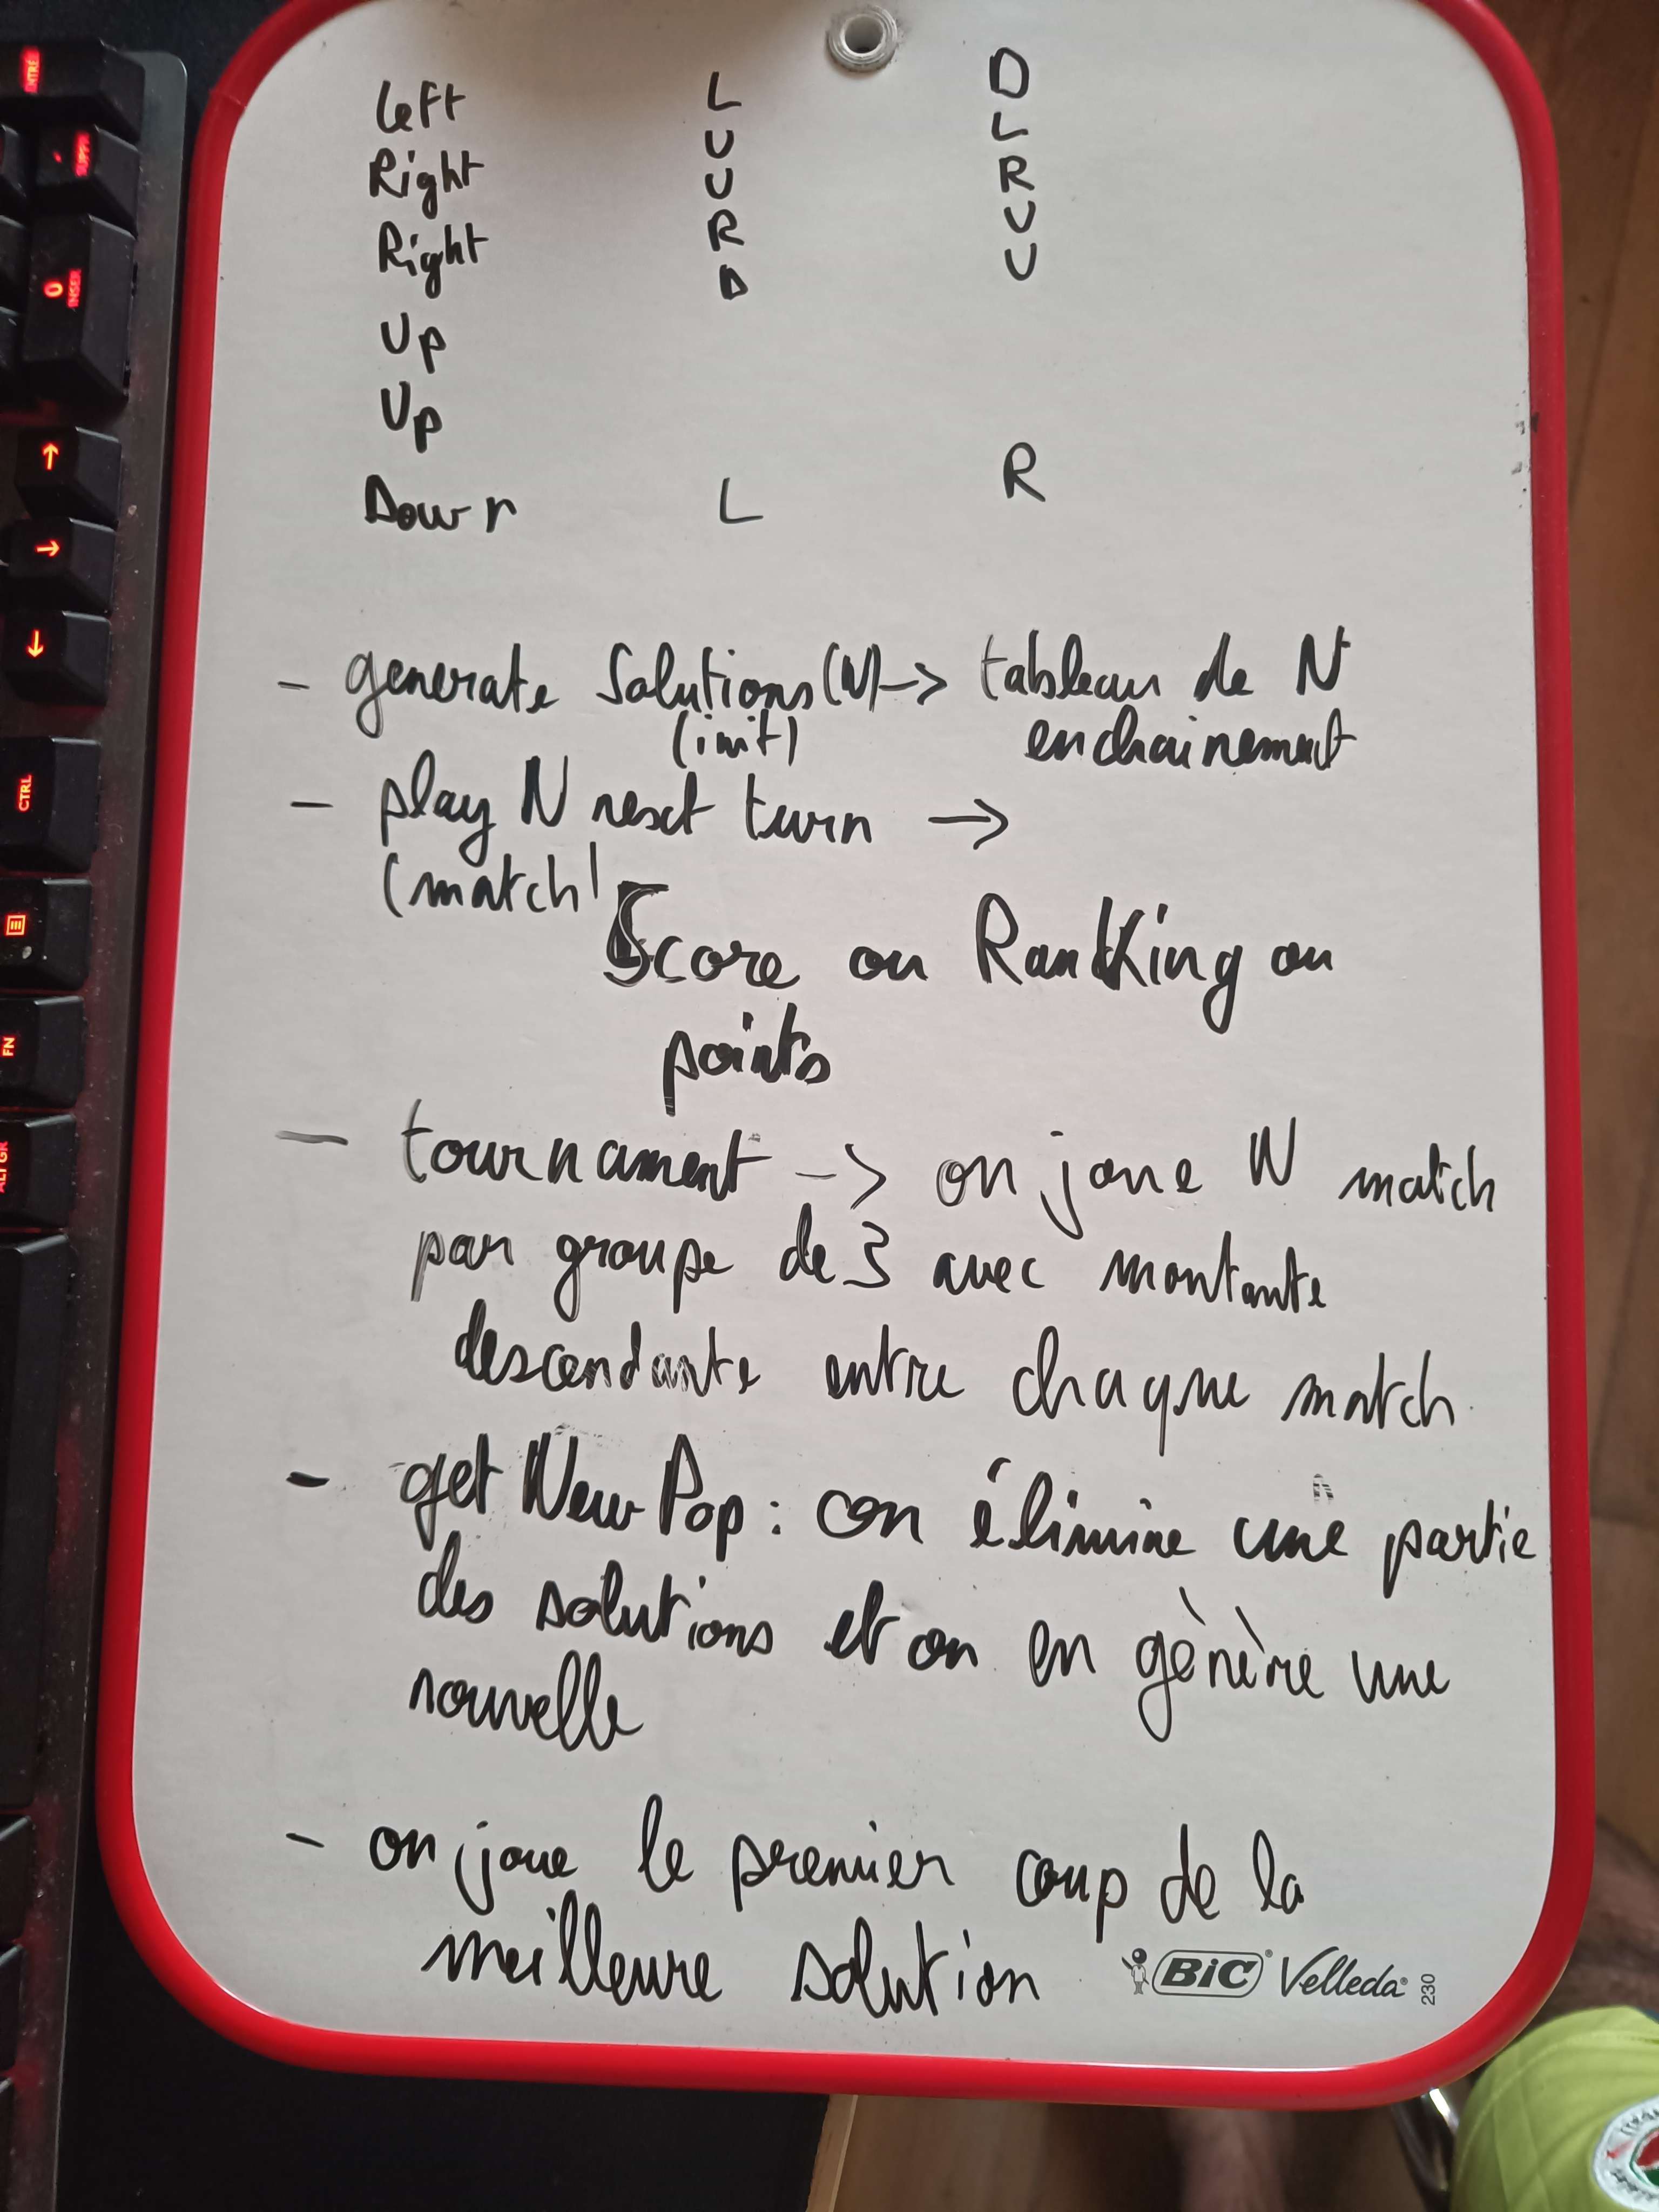 Left L D
Right U L
Right U R
Up R U
Up D U
Down L R
- generate Solutions (N) -> tableau de N
(init) enchainement
- play N next turn ->
(match)
Score ou Rankking ou
points
- tournament -> on joue N match
par groupe de 3 avec montante
descendante entre chaque match
- get New Pop : on élimine une partie
des solutions et on en génère une
nouvelle
- on joue le premier coup de la
meilleure solution
BIC Velleda 230
ENTRÉ
SUPPR
0
INSER
CTRL
FN
ALT GR